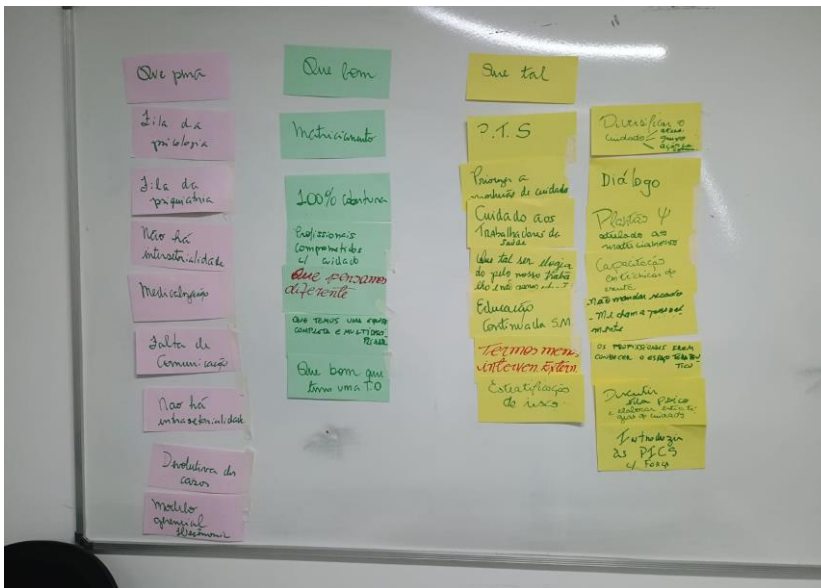 Que pena
Fila da
psicologia
Fila da
psiquiatria
Não há
intersetorialidade
Medicalização
Falta de
Comunicação
Nao há
intrasetorialidade
Devolutiva de
casos
Modelo
gerencial
Que bom
Matriciamento
100% Cobertura
Profissionais
comprometidos
c/ cuidado
Que pensamos
diferente
QUE TEMOS UMA EQUIPE
COMPLETA E
Que bom que
temos uma T.O
Que tal
P.T.S
a
de cuidado
Cuidado aos
Trabalhadores da
saúde
Que tal ser
do pelo nosso Traba
Educação
Continuada SM
Termos menos
interven Extern.
Estratificação
de risco
Diversificar o
cuidado
grupo
Diálogo
Plantão Ψ
Capacitação
-não mandar recado
- me chama
mente
OS PROFISSIONAIS
CONHECER O ESPAÇO
Discutir
e elaborar
Introduzir
as PICS
c/ FORÇA